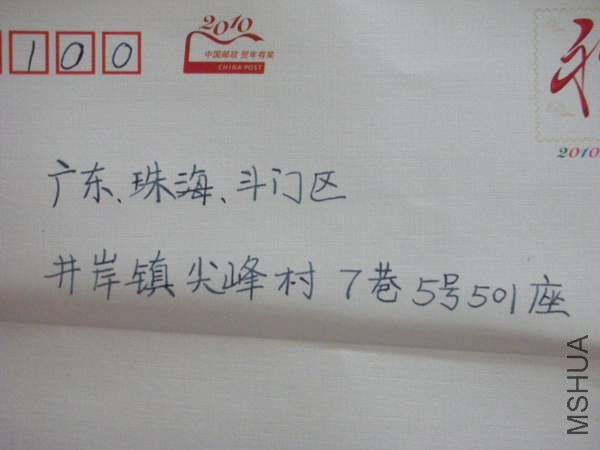 100
2010
中国邮政 贺年有奖
CHINA POST
2010
广东、珠海、斗门区
井岸镇尖峰村7巷5号501座
MSHUA